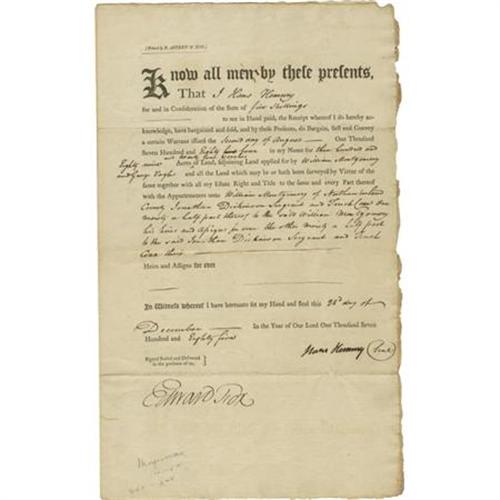 Know all men by these presents,
That I Hans Hamury
for and in Consideration of the Sum of five Shillings
to me in Hand paid, the Receipt whereof I do hereby ac-
knowledge, have bargained and sold, and by these Presents, do Bargain, sell and Convey
a certain Warrant issued the Second day of August One Thousand
Seven Hundred and Eighty four in my Name for three hundred and
Eighty nine Acres of Land, adjoining Land applied for by William Montgomery
and and all the Land which may be or hath been surveyed by Virtue of the
same together with all my Estate Right and Title to the same and every Part thereof
with the Appurtenances unto William Montgomery of Northumberland
County Jonathan Dickinson Sergeant and Tench Coxe One
moiety a half part thereof to the said William Montgomery
his heirs and assigns for ever the other moiety a half part
to the said Jonathan Dickinson Sergeant and Tench
Coxe their
Heirs and Assigns for ever
In Witness whereof I have hereunto set my Hand and Seal this 28th day of
December In the Year of Our Lord One Thousand Seven
Hundred and Eighty five
Hans Hamury Seal
Signed Sealed and Delivered
in the presence of us,
Edward Fox